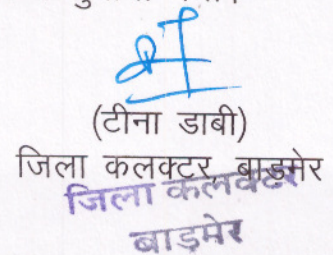 (टीना डाबी)
जिला कलक्टर, बाडमेर
जिला कलक्टर
बाड़मेर